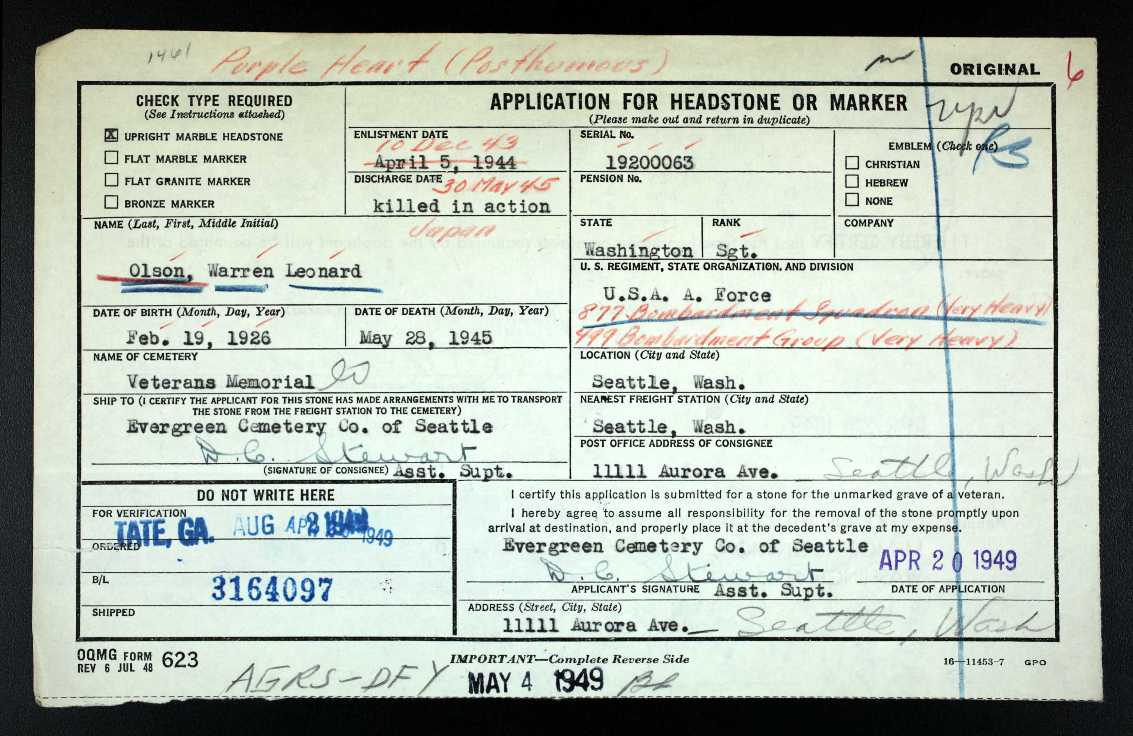 1461 Purple Heart (Posthumous)
ORIGINAL 6
CHECK TYPE REQUIRED
(See Instructions attached)
X UPRIGHT MARBLE HEADSTONE
FLAT MARBLE MARKER
FLAT GRANITE MARKER
BRONZE MARKER
APPLICATION FOR HEADSTONE OR MARKER
(Please make out and return in duplicate)
ENLISTMENT DATE
10 Dec 43
April 5, 1944
DISCHARGE DATE 30 May 45
killed in action
Japan
SERIAL No.
19200063
PENSION No.
EMBLEM (Check one)
CHRISTIAN
HEBREW
NONE
NAME (Last, First, Middle Initial)
Olson, Warren Leonard
STATE
Washington
RANK
Sgt.
COMPANY
U. S. REGIMENT, STATE ORGANIZATION, AND DIVISION
U.S.A. A. Force
877 Bombardment Squadron (Very Heavy)
499 Bombardment Group (Very Heavy)
DATE OF BIRTH (Month, Day, Year)
Feb. 19, 1926
DATE OF DEATH (Month, Day, Year)
May 28, 1945
NAME OF CEMETERY
Veterans Memorial
LOCATION (City and State)
Seattle, Wash.
SHIP TO (I CERTIFY THE APPLICANT FOR THIS STONE HAS MADE ARRANGEMENTS WITH ME TO TRANSPORT
THE STONE FROM THE FREIGHT STATION TO THE CEMETERY)
Evergreen Cemetery Co. of Seattle
D. C. Stewart
(SIGNATURE OF CONSIGNEE) Asst. Supt.
NEAREST FREIGHT STATION (City and State)
Seattle, Wash.
POST OFFICE ADDRESS OF CONSIGNEE
11111 Aurora Ave. Seattle, Wash
DO NOT WRITE HERE
FOR VERIFICATION
TATE, GA. AUG 1949
ORDERED
B/L
3164097
SHIPPED
I certify this application is submitted for a stone for the unmarked grave of a veteran.
I hereby agree to assume all responsibility for the removal of the stone promptly upon
arrival at destination, and properly place it at the decedent's grave at my expense.
Evergreen Cemetery Co. of Seattle
D. C. Stewart
APR 20 1949
APPLICANT'S SIGNATURE Asst. Supt.
DATE OF APPLICATION
ADDRESS (Street, City, State)
11111 Aurora Ave. — Seattle, Wash
OQMG FORM 623
REV 6 JUL 48
IMPORTANT—Complete Reverse Side
16—11453-7 GPO
AGRS-DFY MAY 4 1949